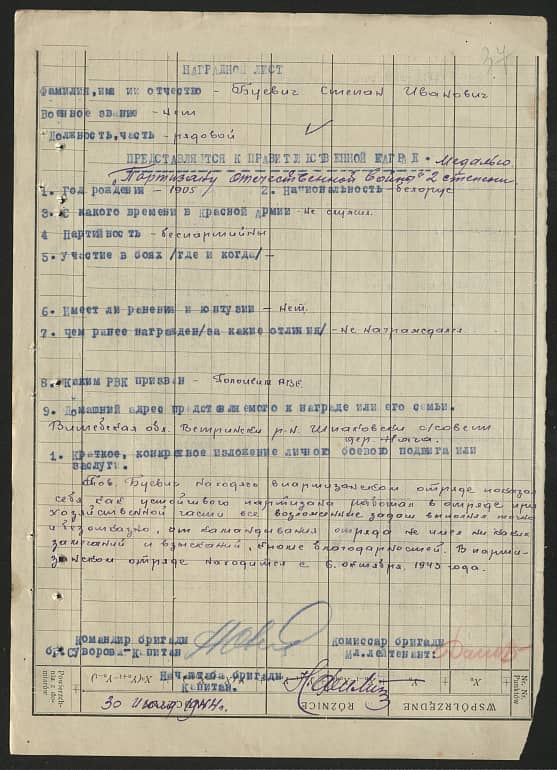 37
НАГРАДНОЙ ЛИСТ
Фамилия, имя и отчество - Буевич Степан Иванович
Военное звание - нет
Должность, часть - рядовой
ПРЕДСТАВЛЯЕТСЯ К ПРАВИТЕЛЬСТВЕННОЙ НАГРАДЕ - медалью
"Партизану отечественной войны" 2 степени
1. Год рождения - 1905 2. Национальность - белорус
3. С какого времени в Красной Армии - не служил.
4 Партийность - беспартийный
5. Участие в боях /где и когда/ -
6. Имеет ли ранения и контузии - нет.
7. чем ранее награжден/за какие отличия/ - не награждался
8. Каким РВК призван - Полоцким РВК
9. Домашний адрес представляемого к награде или его семьи.
Витебская обл. Ветрински р-н. Шпаковски с/совет
дер.
1. Краткое, конкретное изложение личного боевого подвига или
заслуги.
Тов. Буевич находясь в партизанском отряде показал
себя как устойчивого партизана работал в отряде при
хозяйственной части все возложенные задач выполнял точно
и безотказно, от командования отряда не имел ни каких
замечаний и взысканий, кроме благодарностей. В парти-
занском отряде находится с 6. октября 1943 года.
Командир бригады
бр. Суворова-Капитан
Комиссар бригады
Мл. лейтенант:
Нач. штаба бригады
Капитан.
30 1944г.
Powierzch-
nia z do-
miarów
RÓŻNICE
WSPÓŁRZĘDNE
Nr. Nr.
Punktów